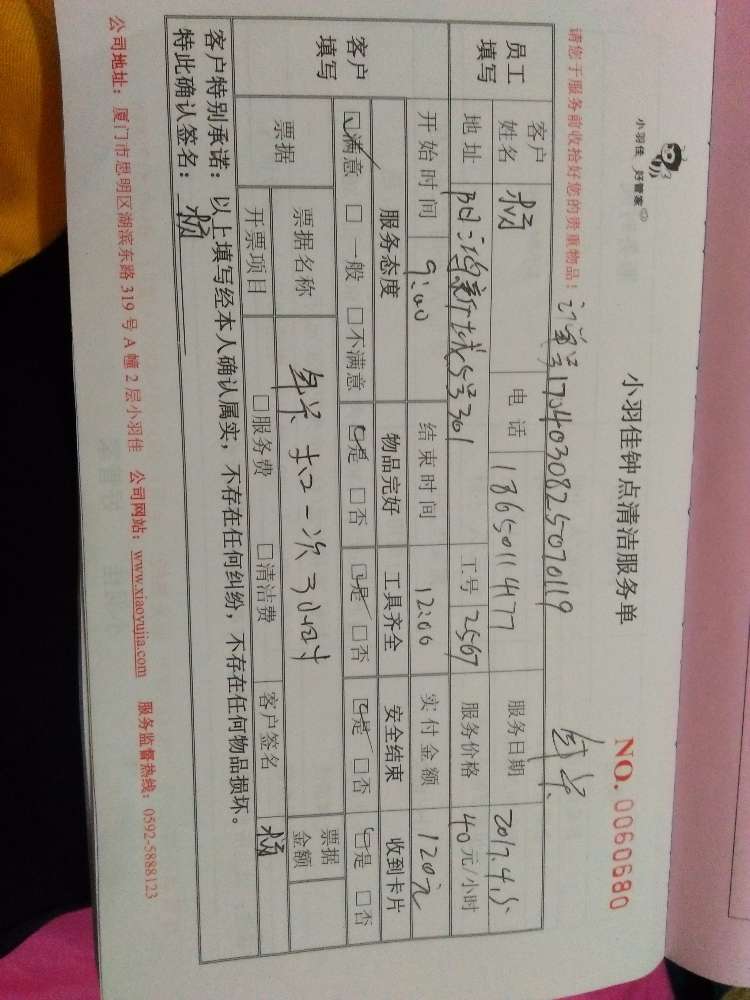 小羽佳 好管家
小羽佳钟点清洁服务单
NO. 0060680
请您于服务前收拾好您的贵重物品! 订单号1704030825070119 年卡
员工填写 客户姓名 杨 电话 18650114177 服务日期 2017.4.
地址 阳鸿新城5号301 工号 2567 服务价格 40元/小时
开始时间 9:00 结束时间 12:00 实付金额 120元
客户填写 服务态度 物品完好 工具齐全 安全结束 收到卡片
☑满意 □一般 □不满意 ☑是 □否 ☑是 □否 ☑是 □否 ☑是 □否
票据 票据名称 年卡扣一次3小时 票据金额
开票项目 □服务费 □清洁费 客户签名 杨
客户特别承诺:以上填写经本人确认属实,不存在任何纠纷,不存在任何物品损坏。
特此确认签名: 杨
公司地址:厦门市思明区湖滨东路 319 号 A 幢 2 层小羽佳 公司网站:www.xiaoyujia.com 服务监督热线:0592-5888123